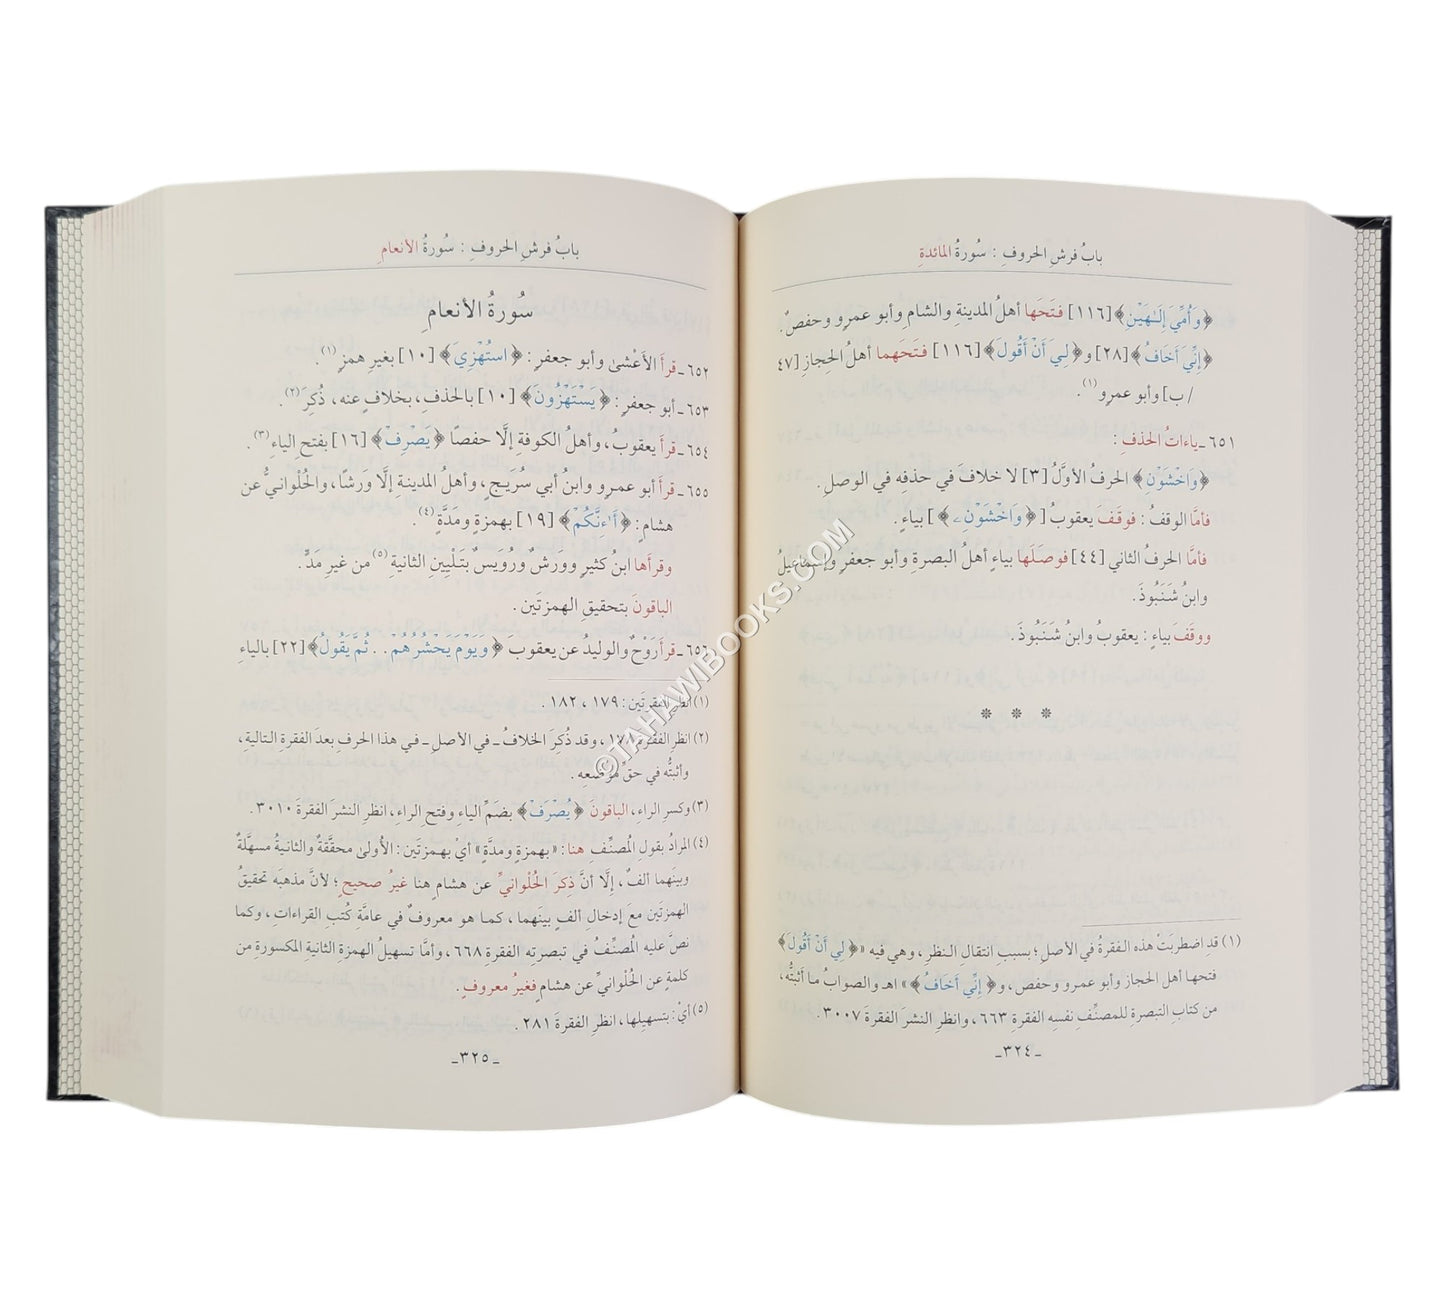 بابُ فرشِ الحروفِ : سُورةُ المائدةِ
﴿وَأُمِّيَ إِلَـٰهَيْنِ﴾[١١٦] فتَحَها أهلُ المدينةِ والشامِ وأبو عمرٍو وحفصٌ.
﴿إِنِّيَ أَخَافُ﴾[٢٨] و﴿لِيَ أَنْ أَقُولَ﴾[١١٦] فتَحَهما أهلُ الحِجازِ [٤٧
/ ب] وأبو عمرٍو(١).
٦٥١ ـ ياءاتُ الحَذفِ :
﴿وَاخْشَوْنِ﴾ الحرفُ الأوّلُ [٣] لا خلافَ في حذفِه في الوصلِ.
فأمَّا الوقفُ : فوقَفَ يعقوبُ [﴿وَاخْشَوْنِۦ﴾] بياءٍ.
فأمَّا الحرفُ الثاني [٤٤] فوصَلَها بياءٍ أهلُ البصرةِ وأبو جعفرٍ وإسماعيلُ
وابنُ شَنَبُوذَ.
ووقَفَ بياءٍ : يعقوبُ وابنُ شَنَبُوذَ.
* * *
(١) قدِ اضطربَتْ هذه الفقرةُ في الأصلِ ؛ بسببِ انتقالِ النظرِ ، وهي فيه «﴿لِي أَنْ أَقُولَ﴾
فتحها أهل الحجاز وأبو عمرو وحفص، و﴿إِنِّي أَخَافُ﴾» اهـ والصوابُ ما أثبتُّه،
من كتابِ التبصرةِ للمصنِّفِ نفسِه الفقرة ٦٦٣ ، وانظرِ النشرَ الفقرةَ ٣٠٠٧.
ـ ٣٢٤ ـ
بابُ فرشِ الحروفِ : سُورةُ الأنعامِ
سُورةُ الأنعامِ
٦٥٢ ـ قرأَ الأَعْشىٰ وأبو جعفرٍ : ﴿اسْتُهْزِيَ﴾ [١٠] بغيرِ همزٍ(١).
٦٥٣ ـ أبو جعفرٍ : ﴿يَسْتَهْزُونَ﴾ [١٠] بالحَذفِ، بخلافٍ عنه ، ذُكِرَ(٢).
٦٥٤ ـ قرأَ يعقوبُ، وأهلُ الكوفةِ إلَّا حفصًا ﴿يَصْرِفْ﴾ [١٦] بفتحِ الياءِ(٣).
٦٥٥ ـ قرأَ أبو عمرٍو وابنُ أبي سُرَيـجٍ ، وأهلُ المدينةِ إلَّا وَرشًا، والحُلْوانـيُّ عن
هشامٍ : ﴿أَاٰئِنَّكُمْ﴾ [١٩] بهمزةٍ ومَدَّةٍ(٤).
وقرأَها ابنُ كثيرٍ وورشٌ ورُوَيسٌ بتَلْيينِ الثانيةِ(٥) من غيرِ مَدٍّ.
الباقونَ بتحقيقِ الهمزتَين .
٦٥٦ ـ قرأَ رَوْحٌ والوليدُ عن يعقوبَ ﴿وَيَوْمَ يَحْشُرُهُمْ . . ثُمَّ يَقُولُ﴾[٢٢] بالياءِ
(١) انظرِ الفقرتَين : ١٧٩ ، ١٨٢ .
(٢) انظرِ الفقرةَ ١٧٨ ، وقد ذُكِرَ الخلافُ ـ في الأصلِ ـ في هذا الحرفِ بعدَ الفقرةِ التالية،
وأثبتُّه في حقِّ موضعِه .
(٣) وكسرِ الراءِ، الباقونَ ﴿يُصْرَفْ﴾ بضَمِّ الياءِ وفتحِ الراءِ، انظرِ النشرَ الفقرةَ ٣٠١٠ .
(٤) المرادُ بقولِ المُصنِّفِ هنا : «بهمزةٍ ومدَّةٍ» أيْ بهمزتَين: الأُولىٰ محقَّقةٌ والثانيةُ مسهلَةٌ
وبينَهما ألفٌ، إلَّا أنَّ ذِكرَ الحُلْوانيِّ عن هشامٍ هنا غيرُ صحيحٍ؛ لأنَّ مذهبَه تحقيقُ
الهمزتَين معَ إدخالِ ألفٍ بينَهما، كما هو معروفٌ في عامَّةِ كُتبِ القراءات، وكما
نصَّ عليه المُصنِّفُ في تبصرته الفقرة ٦٦٨ ، وأمَّا تسهيلُ الهمزة الثانية المكسورةِ من
كلمةٍ عن الحُلْوانيِّ عن هشامٍ فغيرُ معروفٍ.
(٥) أيْ : بتسهيلِها ، انظرِ الفقرةَ ٢٨١ .
ـ ٣٢٥ ـ
©TAHAWIBOOKS.COM